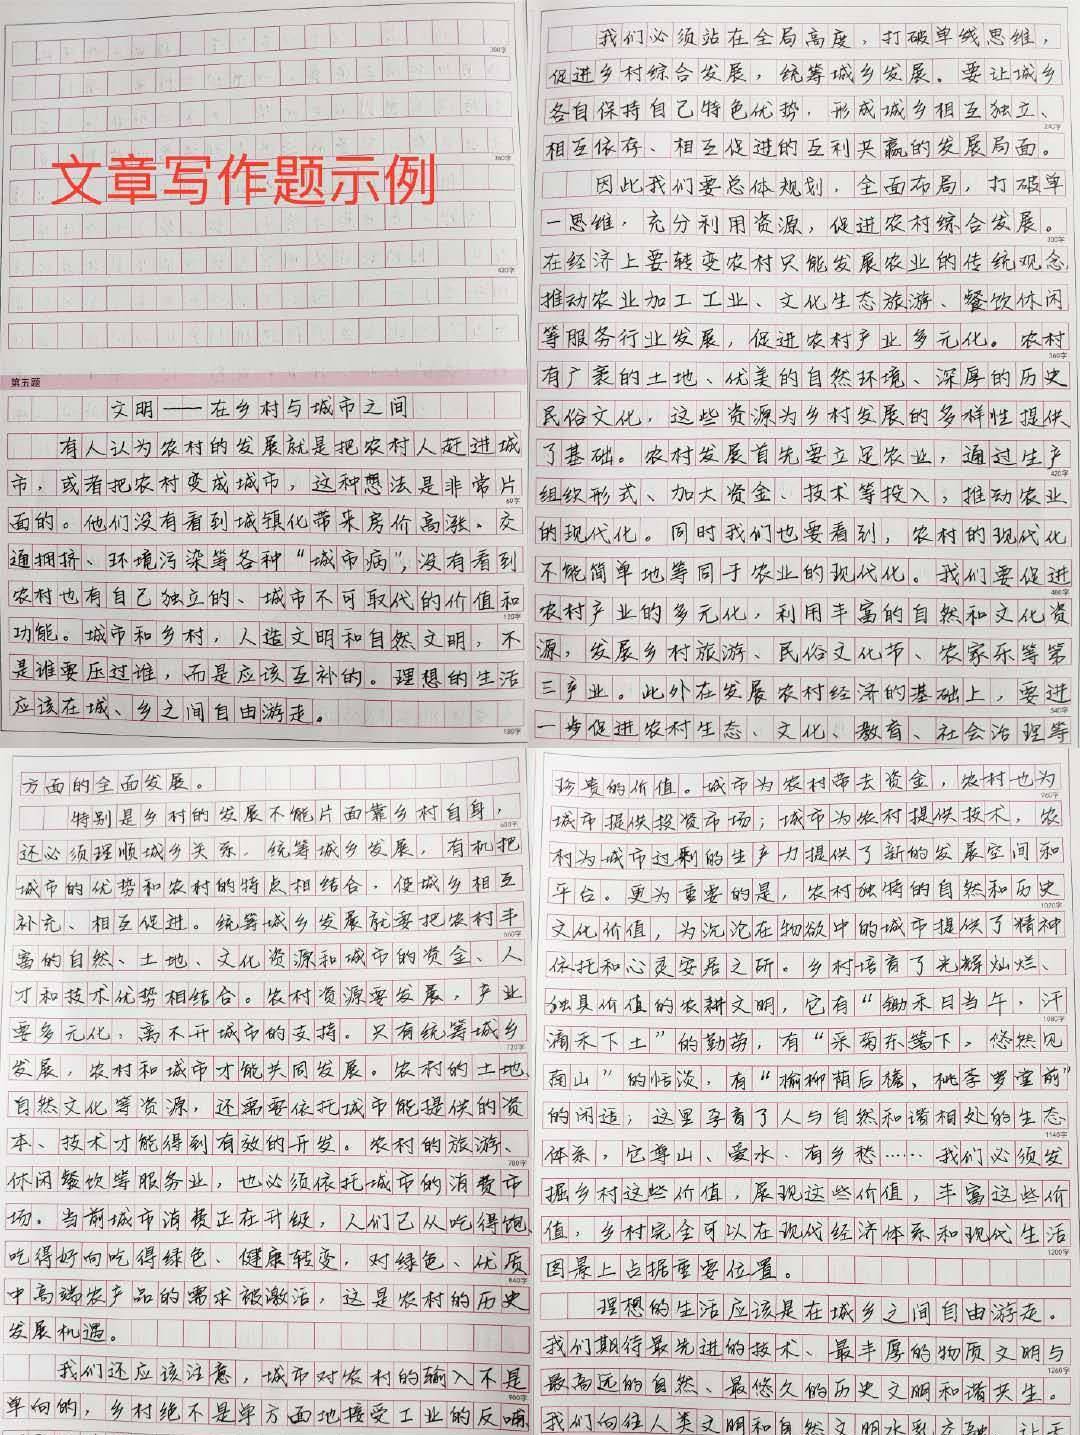 360字
文章写作题示例
420字
第五题
文明——在乡村与城市之间
有人认为农村的发展就是把农村人赶进城
市，或者把农村变成城市，这种想法是非常片
60字
面的。他们没有看到城镇化带来房价高涨、交
通拥挤、环境污染等各种“城市病”，没有看到
农村也有自己独立的、城市不可取代的价值和
120字
功能。城市和乡村，人造文明和自然文明，不
是谁要压过谁，而是应该互补的。理想的生活
应该在城、乡之间自由游走。
180字
我们必须站在全局高度，打破单线思维，
促进乡村综合发展，统筹城乡发展。要让城乡
各自保持自己特色优势，形成城乡相互独立、
240字
相互依存、相互促进的互利共赢的发展局面。
因此我们要总体规划，全面布局，打破单
一思维，充分利用资源，促进农村综合发展。
300字
在经济上要转变农村只能发展农业的传统观念
推动农业加工工业、文化生态旅游、餐饮休闲
等服务行业发展，促进农村产业多元化。农村
360字
有广袤的土地、优美的自然环境、深厚的历史
民俗文化，这些资源为乡村发展的多样性提供
了基础。农村发展首先要立足农业，通过生产
420字
组织形式、加大资金、技术等投入，推动农业
的现代化。同时我们也要看到，农村的现代化
不能简单地等同于农业的现代化。我们要促进
480字
农村产业的多元化，利用丰富的自然和文化资
源，发展乡村旅游、民俗文化节、农家乐等第
三产业。此外在发展农村经济的基础上，要进
540字
一步促进农村生态、文化、教育、社会治理等
方面的全面发展。
特别是乡村的发展不能片面靠乡村自身，
600字
还必须理顺城乡关系，统筹城乡发展，有机把
城市的优势和农村的特点相结合，使城乡相互
补充、相互促进。统筹城乡发展就要把农村丰
660字
富的自然、土地、文化资源和城市的资金、人
才和技术优势相结合。农村资源要发展，产业
要多元化，离不开城市的支持。只有统筹城乡
720字
发展，农村和城市才能共同发展。农村的土地、
自然文化等资源，还需要依托城市能提供的资
本、技术才能得到有效的开发。农村的旅游、
780字
休闲餐饮等服务业，也必须依托城市的消费市
场。当前城市消费正在升级，人们已从吃得饱、
吃得好向吃得绿色、健康转变，对绿色、优质
840字
中高端农产品的需求被激活，这是农村的历史
发展机遇。
我们还应该注意，城市对农村的输入不是
900字
单向的，乡村绝不是单方面地接受工业的反哺
珍贵的价值。城市为农村带去资金，农村也为
960字
城市提供投资市场；城市为农村提供技术，农
村为城市过剩的生产力提供了新的发展空间和
平台。更为重要的是，农村独特的自然和历史
1020字
文化价值，为沉沦在物欲中的城市提供了精神
依托和心灵安居之所。乡村培育了光辉灿烂、
独具价值的农耕文明，它有“锄禾日当午，汗
1080字
滴禾下土”的勤劳，有“采菊东篱下，悠然见
南山”的恬淡，有“榆柳荫后檐，桃李罗堂前”
的闲适；这里孕育了人与自然和谐相处的生态
1140字
体系，它尊山、爱水、有乡愁……我们必须发
掘乡村这些价值，展现这些价值，丰富这些价
值，乡村完全可以在现代经济体系和现代生活
1200字
图景上占据重要位置。
理想的生活应该是在城乡之间自由游走。
我们期待最先进的技术、最丰厚的物质文明与
1260字
最高远的自然、最悠久的历史文明和谐共生。
我们向往人类文明和自然文明水乳交融，让天